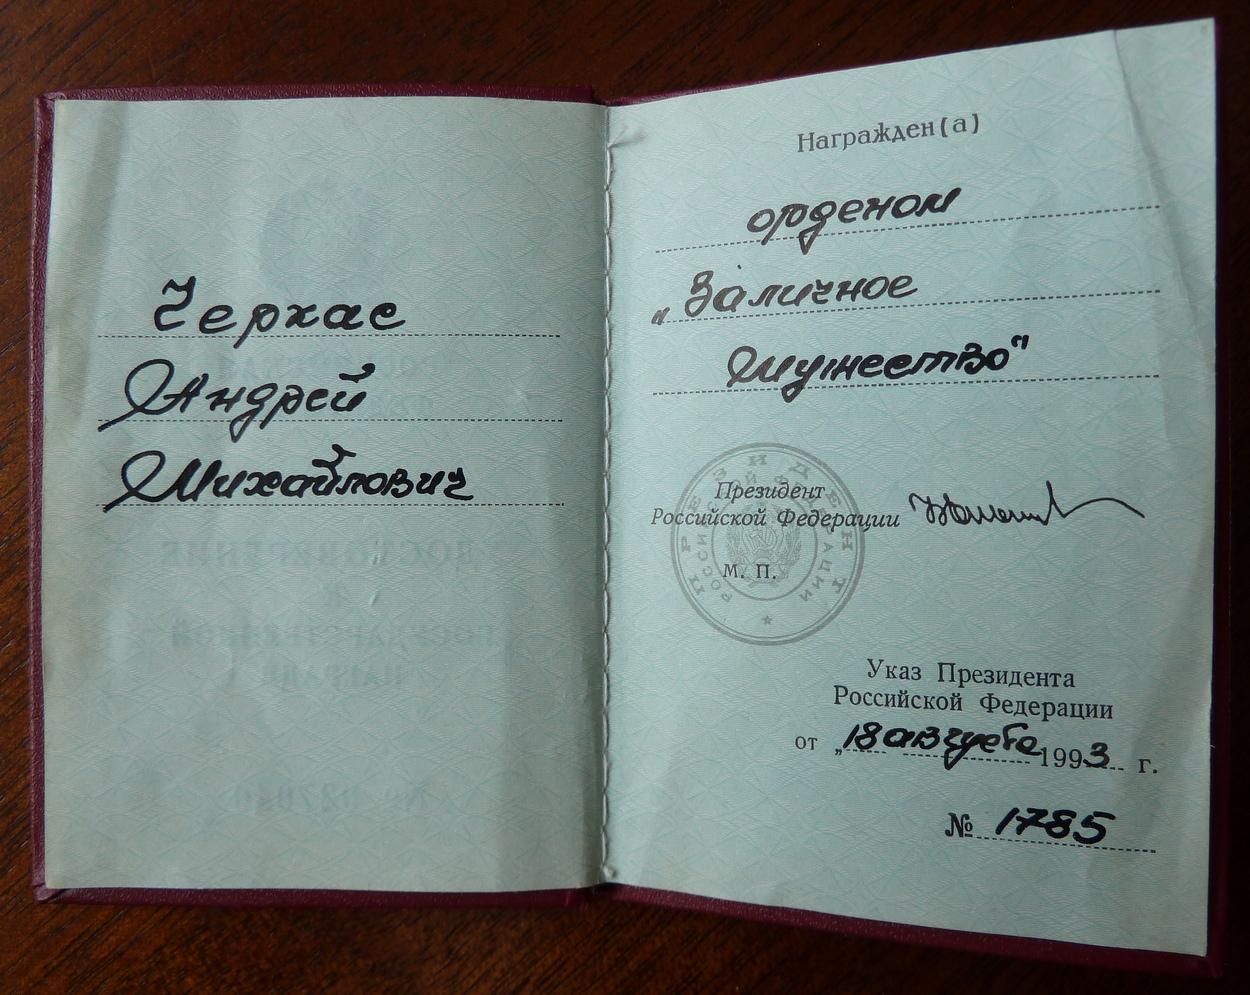 Черкас
Андрей
Михайлович
Награжден(а)
орденом
„За личное
мужество"
ПРЕЗИДЕНТ
РОССИЙСКОЙ ФЕДЕРАЦИИ
Президент
Российской Федерации
М. П.
Указ Президента
Российской Федерации
от „18 августа 1993 г.
№ 1785